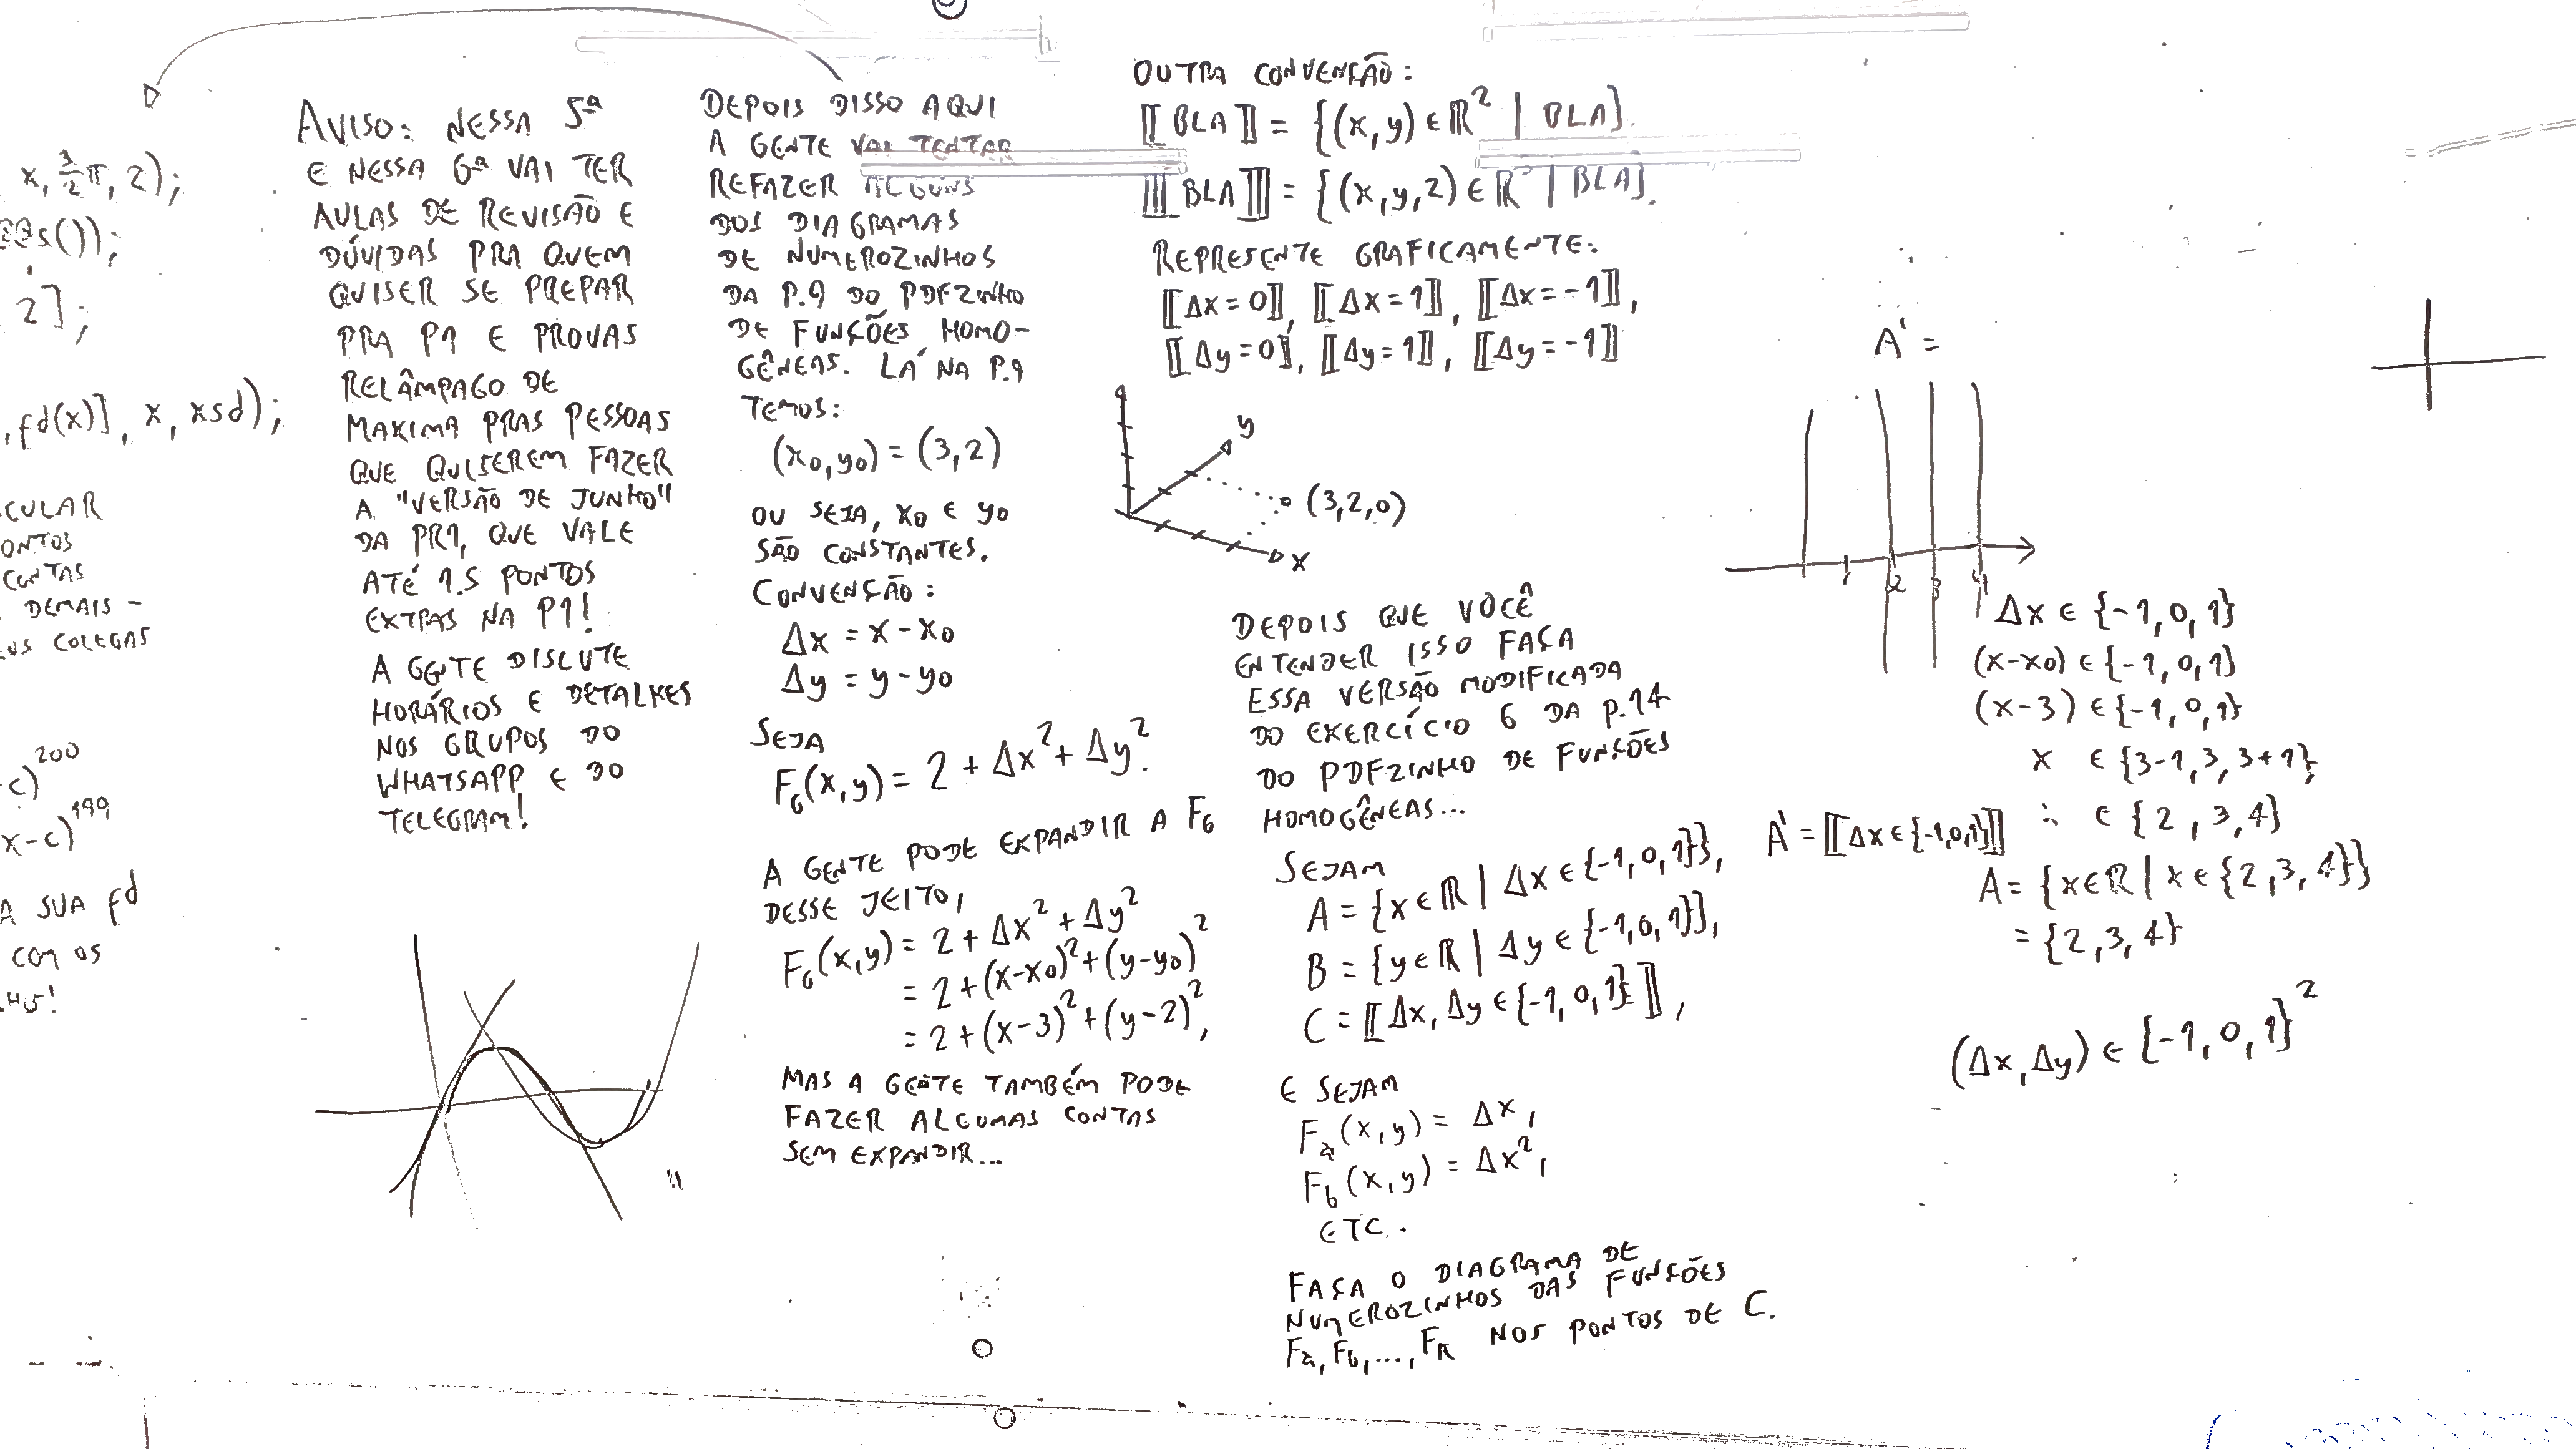 x, 3/2 π, 2);
s());
2];
,fd(x)], x, xsd);
CULAR
ONTOS
CONTAS
DEMAIS -
US COLEGAS
c)^200
x-c)^199
A SUA fd
COM OS
AVISO: NESSA 5ª
E NESSA 6ª VAI TER
AULAS DE REVISÃO E
DÚVIDAS PRA QUEM
QUISER SE PREPAR
PRA P1 E PROVAS
RELÂMPAGO DE
MAXIMA PRAS PESSOAS
QUE QUISEREM FAZER
A "VERSÃO DE JUNHO"
DA PR1, QUE VALE
ATÉ 1.5 PONTOS
EXTRAS NA P1!
A GENTE DISCUTE
HORÁRIOS E DETALHES
NOS GRUPOS DO
WHATSAPP E DO
TELEGRAM!
DEPOIS DISSO AQUI
A GENTE VAI TENTAR
REFAZER ALGUNS
DOS DIAGRAMAS
DE NUMEROZINHOS
DA P.9 DO PDFZINHO
DE FUNÇÕES HOMO-
GÊNEAS. LÁ NA P.9
TEMOS:
(x0,y0) = (3,2)
OU SEJA, x0 E y0
SÃO CONSTANTES.
CONVENÇÃO:
Δx = x - x0
Δy = y - y0
SEJA
F6(x,y) = 2 + Δx² + Δy².
A GENTE PODE EXPANDIR A F6
DESSE JEITO,
F6(x,y) = 2 + Δx² + Δy²
= 2 + (x-x0)² + (y-y0)²
= 2 + (x-3)² + (y-2)²,
MAS A GENTE TAMBÉM PODE
FAZER ALGUMAS CONTAS
SEM EXPANDIR...
OUTRA CONVENÇÃO:
⟦BLA⟧ = {(x,y) ∈ ℝ² | BLA}.
[⟦BLA⟧] = {(x,y,z) ∈ ℝ³ | BLA}.
REPRESENTE GRAFICAMENTE:
⟦Δx=0⟧, ⟦Δx=1⟧, ⟦Δx=-1⟧,
⟦Δy=0⟧, ⟦Δy=1⟧, ⟦Δy=-1⟧
y
(3,2,0)
x
DEPOIS QUE VOCÊ
ENTENDER ISSO FAÇA
ESSA VERSÃO MODIFICADA
DO EXERCÍCIO 6 DA P.14
DO PDFZINHO DE FUNÇÕES
HOMOGÊNEAS...
SEJAM
A = {x ∈ ℝ | Δx ∈ {-1,0,1}},
B = {y ∈ ℝ | Δy ∈ {-1,0,1}},
C = ⟦Δx, Δy ∈ {-1,0,1}⟧,
E SEJAM
Fa(x,y) = Δx,
Fb(x,y) = Δx²,
ETC.
FAÇA O DIAGRAMA DE
NUMEROZINHOS DAS FUNÇÕES
Fa, Fb, ..., Fk NOS PONTOS DE C.
A' =
1 2 3 4
Δx ∈ {-1,0,1}
(x-x0) ∈ {-1,0,1}
(x-3) ∈ {-1,0,1}
x ∈ {3-1,3,3+1},
∴ ∈ {2,3,4}
A' = ⟦Δx ∈ {-1,0,1}⟧
A = {x∈ℝ | x ∈ {2,3,4}}
= {2,3,4}
(Δx,Δy) ∈ {-1,0,1}²